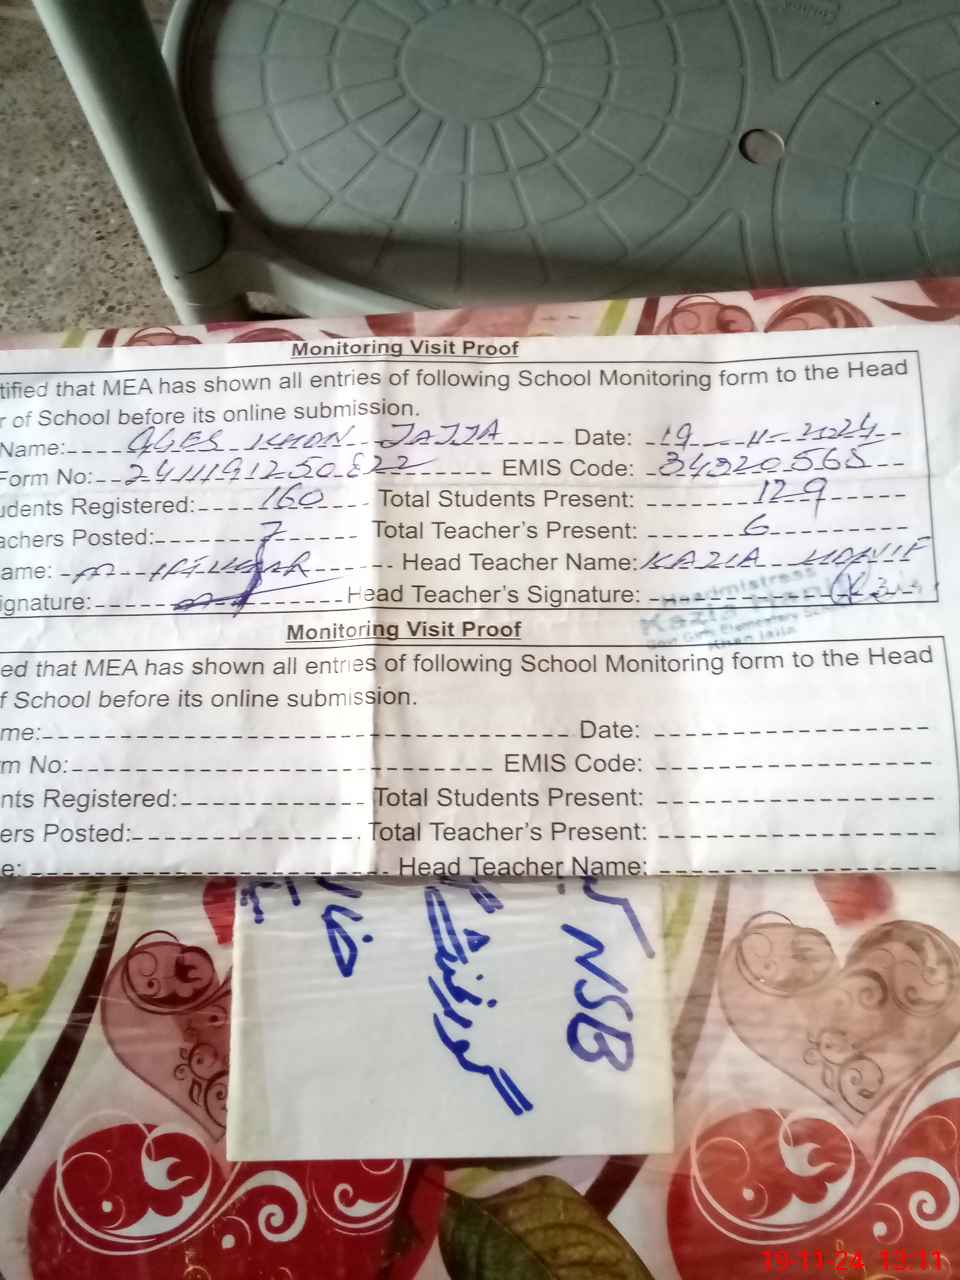 Monitoring Visit Proof
tified that MEA has shown all entries of following School Monitoring form to the Head
r of School before its online submission.
Name: KHAN JAJJA Date: 19-11-2024
Form No: EMIS Code: 34320565
udents Registered: 160 Total Students Present: 129
achers Posted: 7 Total Teacher's Present: 6
ame: Head Teacher Name: KAZIA
ignature: Head Teacher's Signature:
Headmistress
Kazia
Govt Girls Elementary
Monitoring Visit Proof
ed that MEA has shown all entries of following School Monitoring form to the Head
f School before its online submission.
me: Date:
m No: EMIS Code:
nts Registered: Total Students Present:
ers Posted: Total Teacher's Present:
e: Head Teacher Name:
NSB
گورنمنٹ
19-11-24 13:11